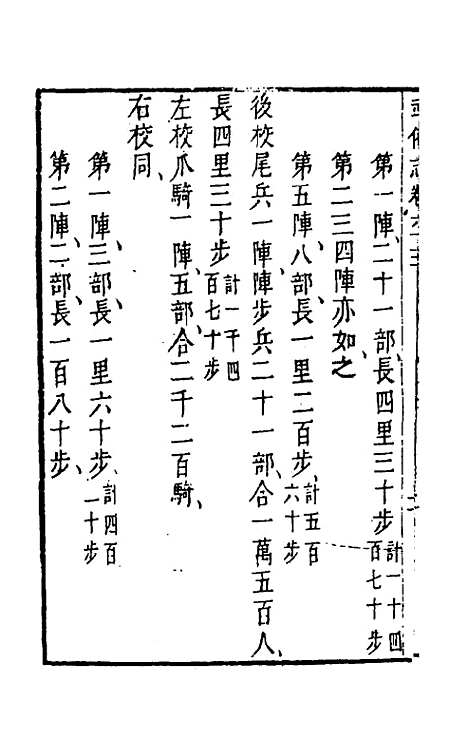 武備志卷
第一陣、二十一部、長四里三十步計一千四百七十步
第二三四陣亦如之、
第五陣、八部、長一里二百步、計五百六十步
後校尾兵一陣、陣步兵二十一部、合一萬五百人、
長四里三十步計一千四百七十步
左校爪騎一陣、五部、合二千二百騎、
右校同、
第一陣、三部、長一里六十步、計四百二十步
第二陣、二部、長一百八十步、